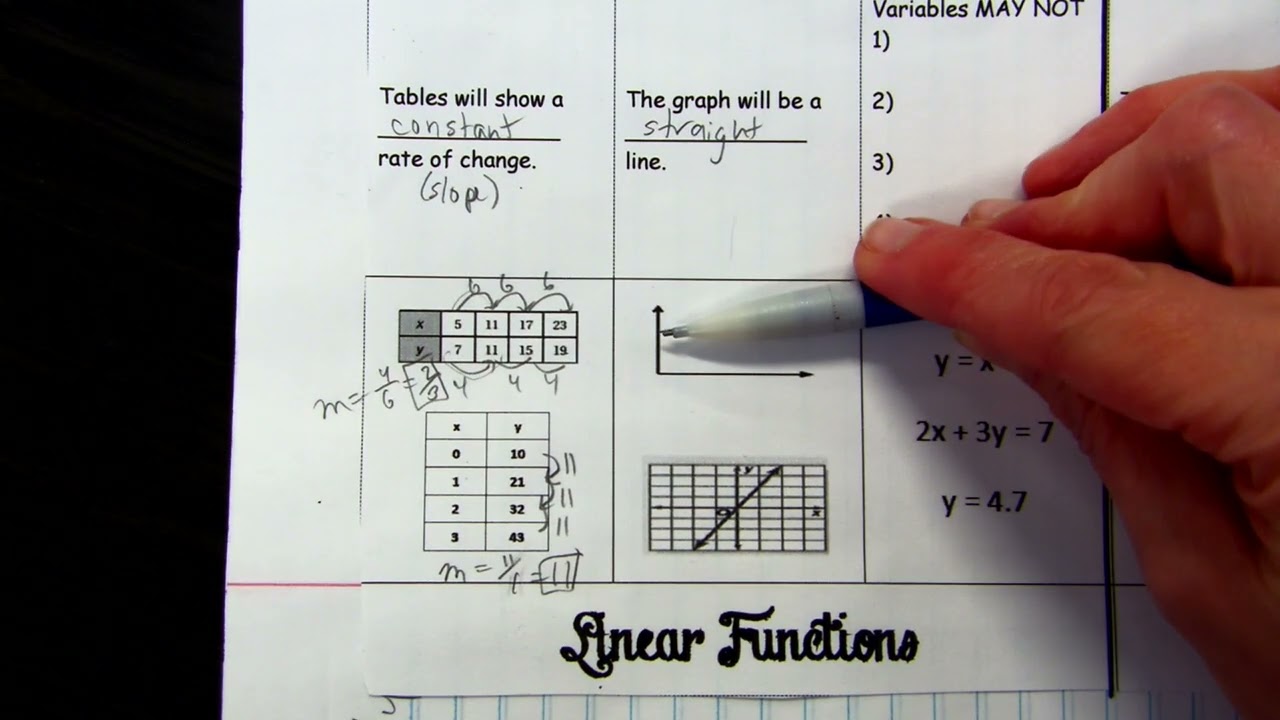 Variables MAY NOT
1)
2)
3)
Tables will show a
constant
rate of change.
(slope)
The graph will be a
straight
line.
6 6 6
x 5 11 17 23
y 7 11 15 19
4 4 4
m = 4/6 = 2/3
x y
0 10
1 21
2 32
3 43
11
11
11
m = 11/1 = 11
y
x
y = x
2x + 3y = 7
y = 4.7
Linear Functions